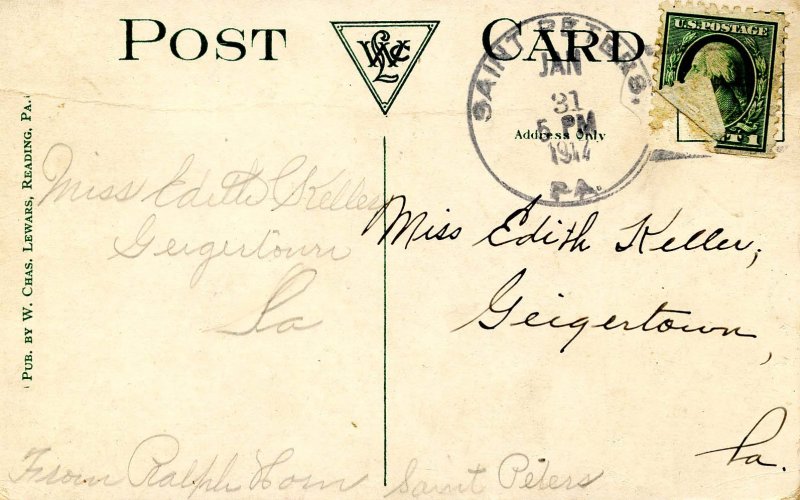 POST CARD
WCL
SAINT PETERS.
JAN
31
5 PM
1914
PA.
U.S. POSTAGE
Address Only
PUB. BY W. CHAS. LEWARS, READING, PA.
Miss Edith Keller
Geigertown
Pa
Miss Edith Keller,
Geigertown,
Pa.
From Ralph Horn Saint Peters